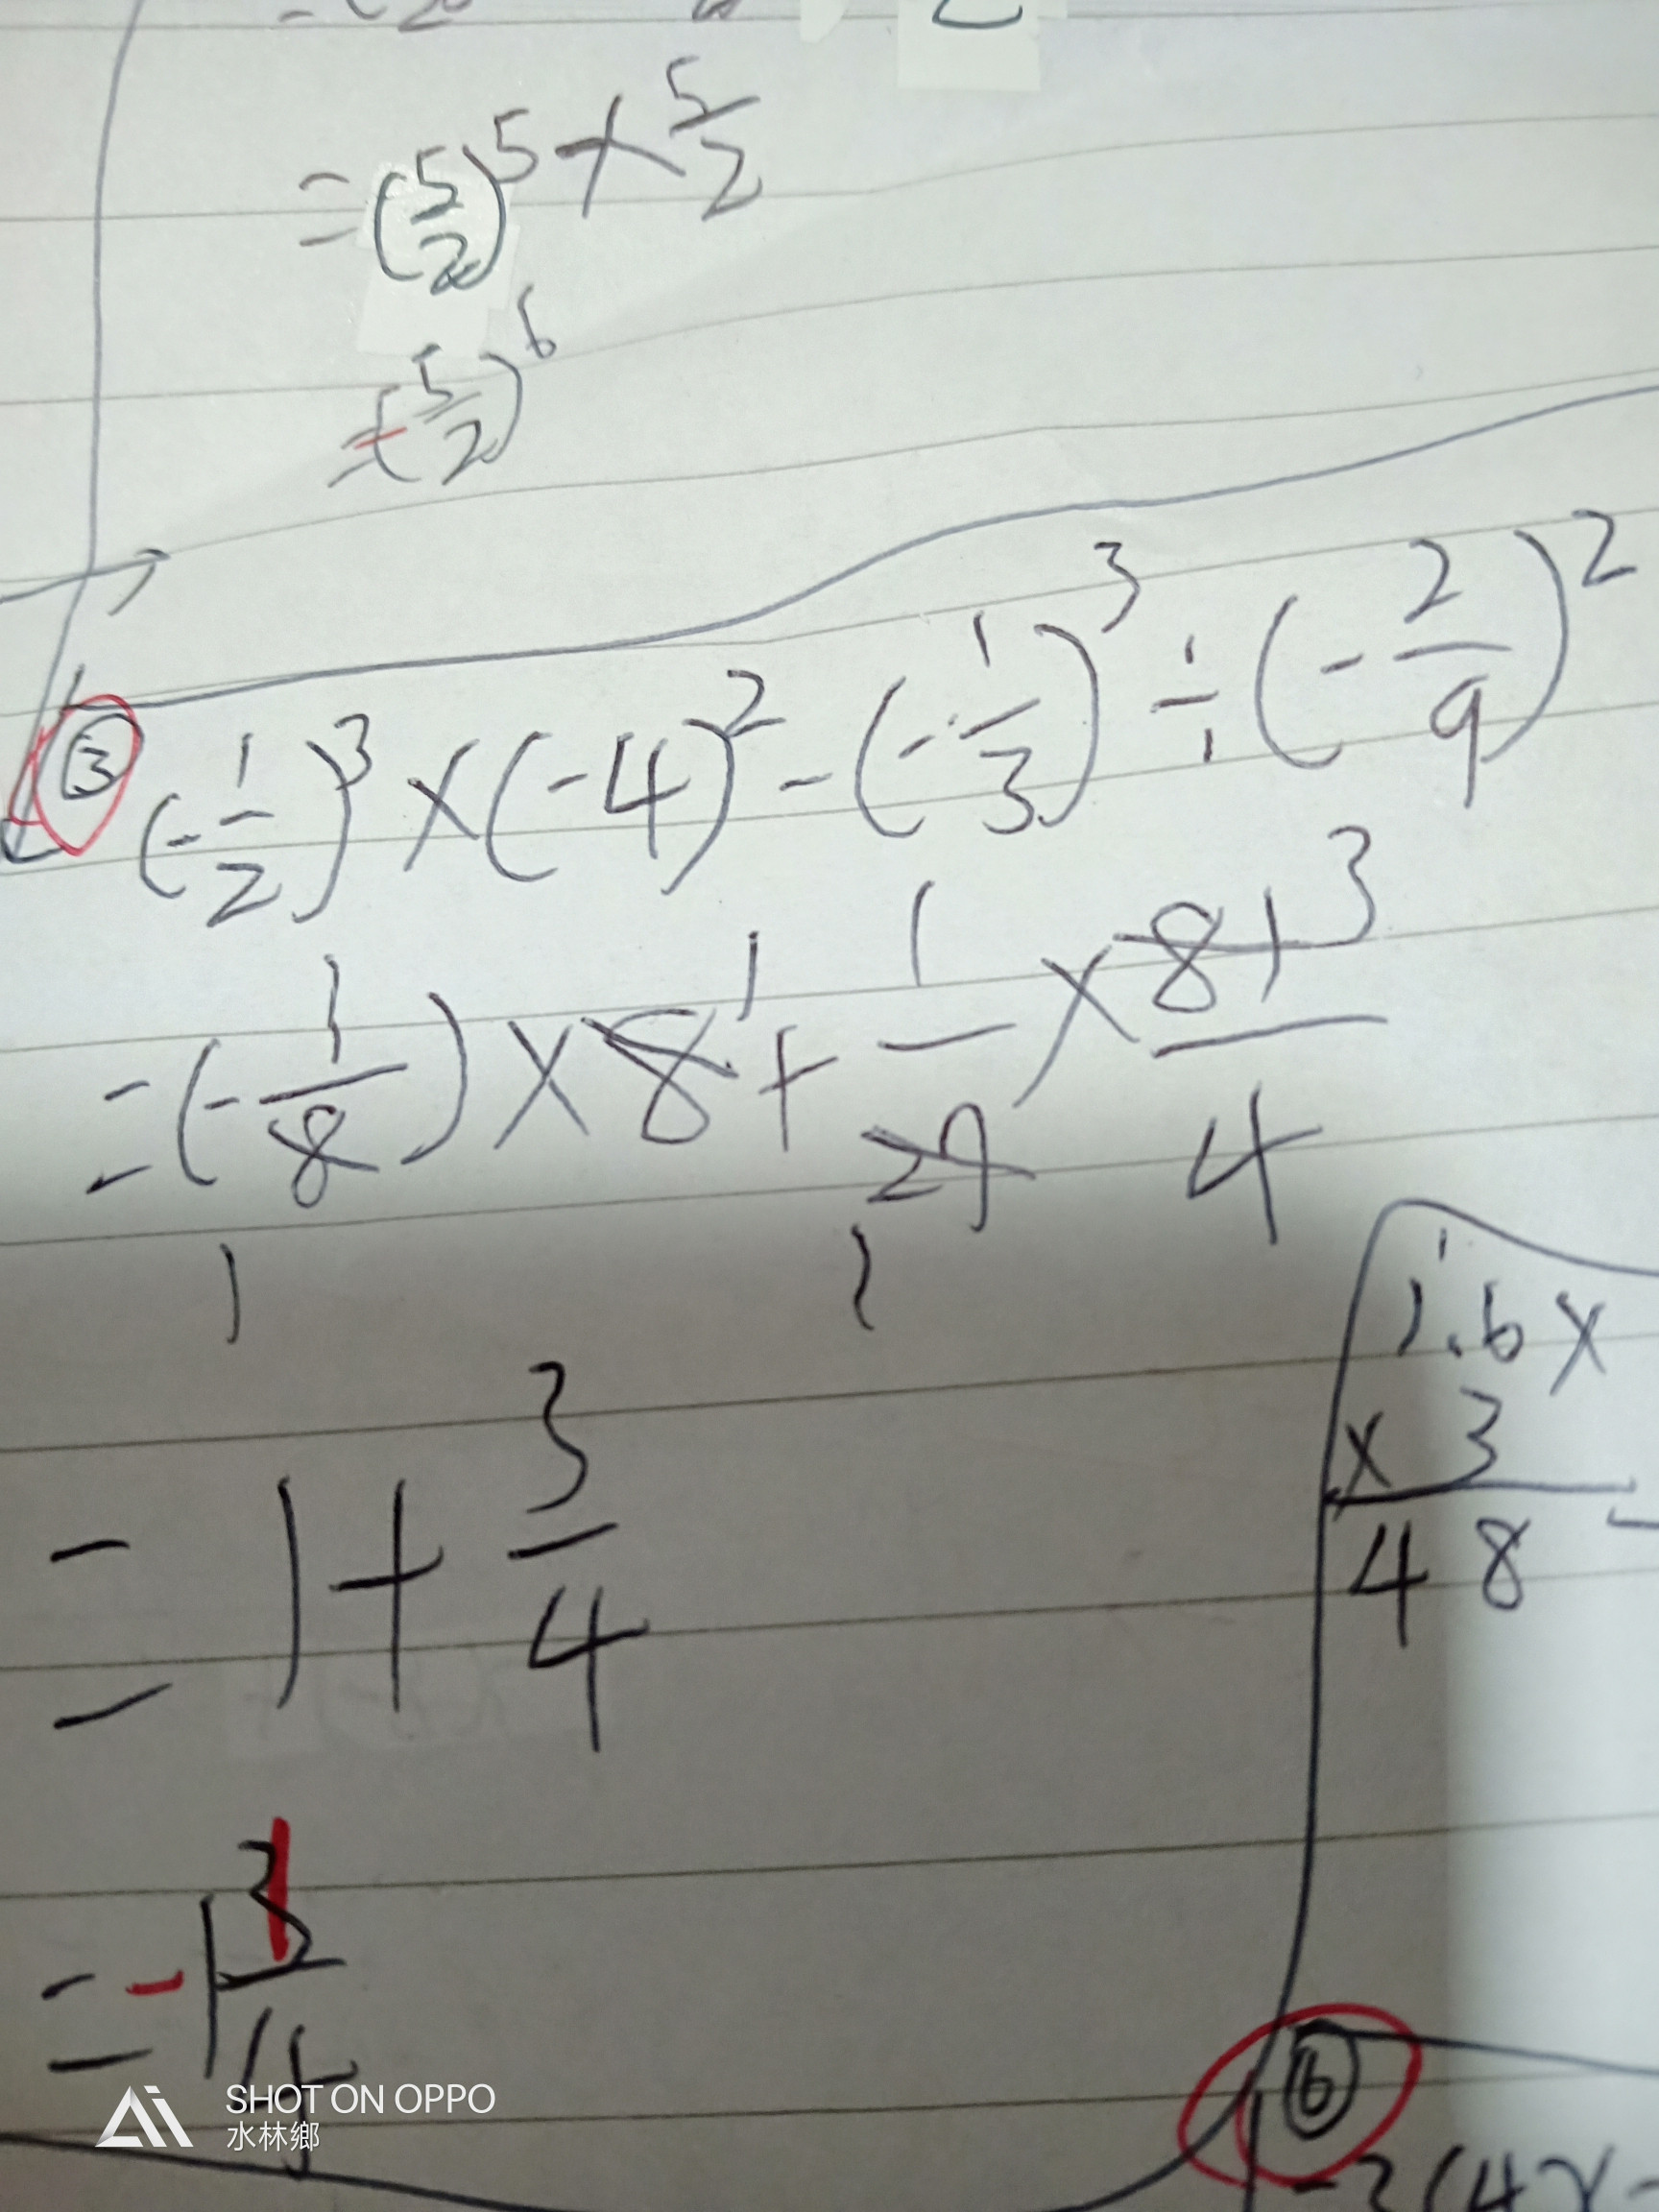 = (5/2)^5 × 5/2
= (5/2)^6
③ (-1/2)^3 × (-4)^2 - (-1/3)^3 ÷ (-2/9)^2
= (-1/8) × 8 + 1/27 × 81/4
1 1 3 1
= 1 + 3/4
= -1 3/4
1
1.6x
× 3
4 8
⑥
SHOT ON OPPO
水林鄉